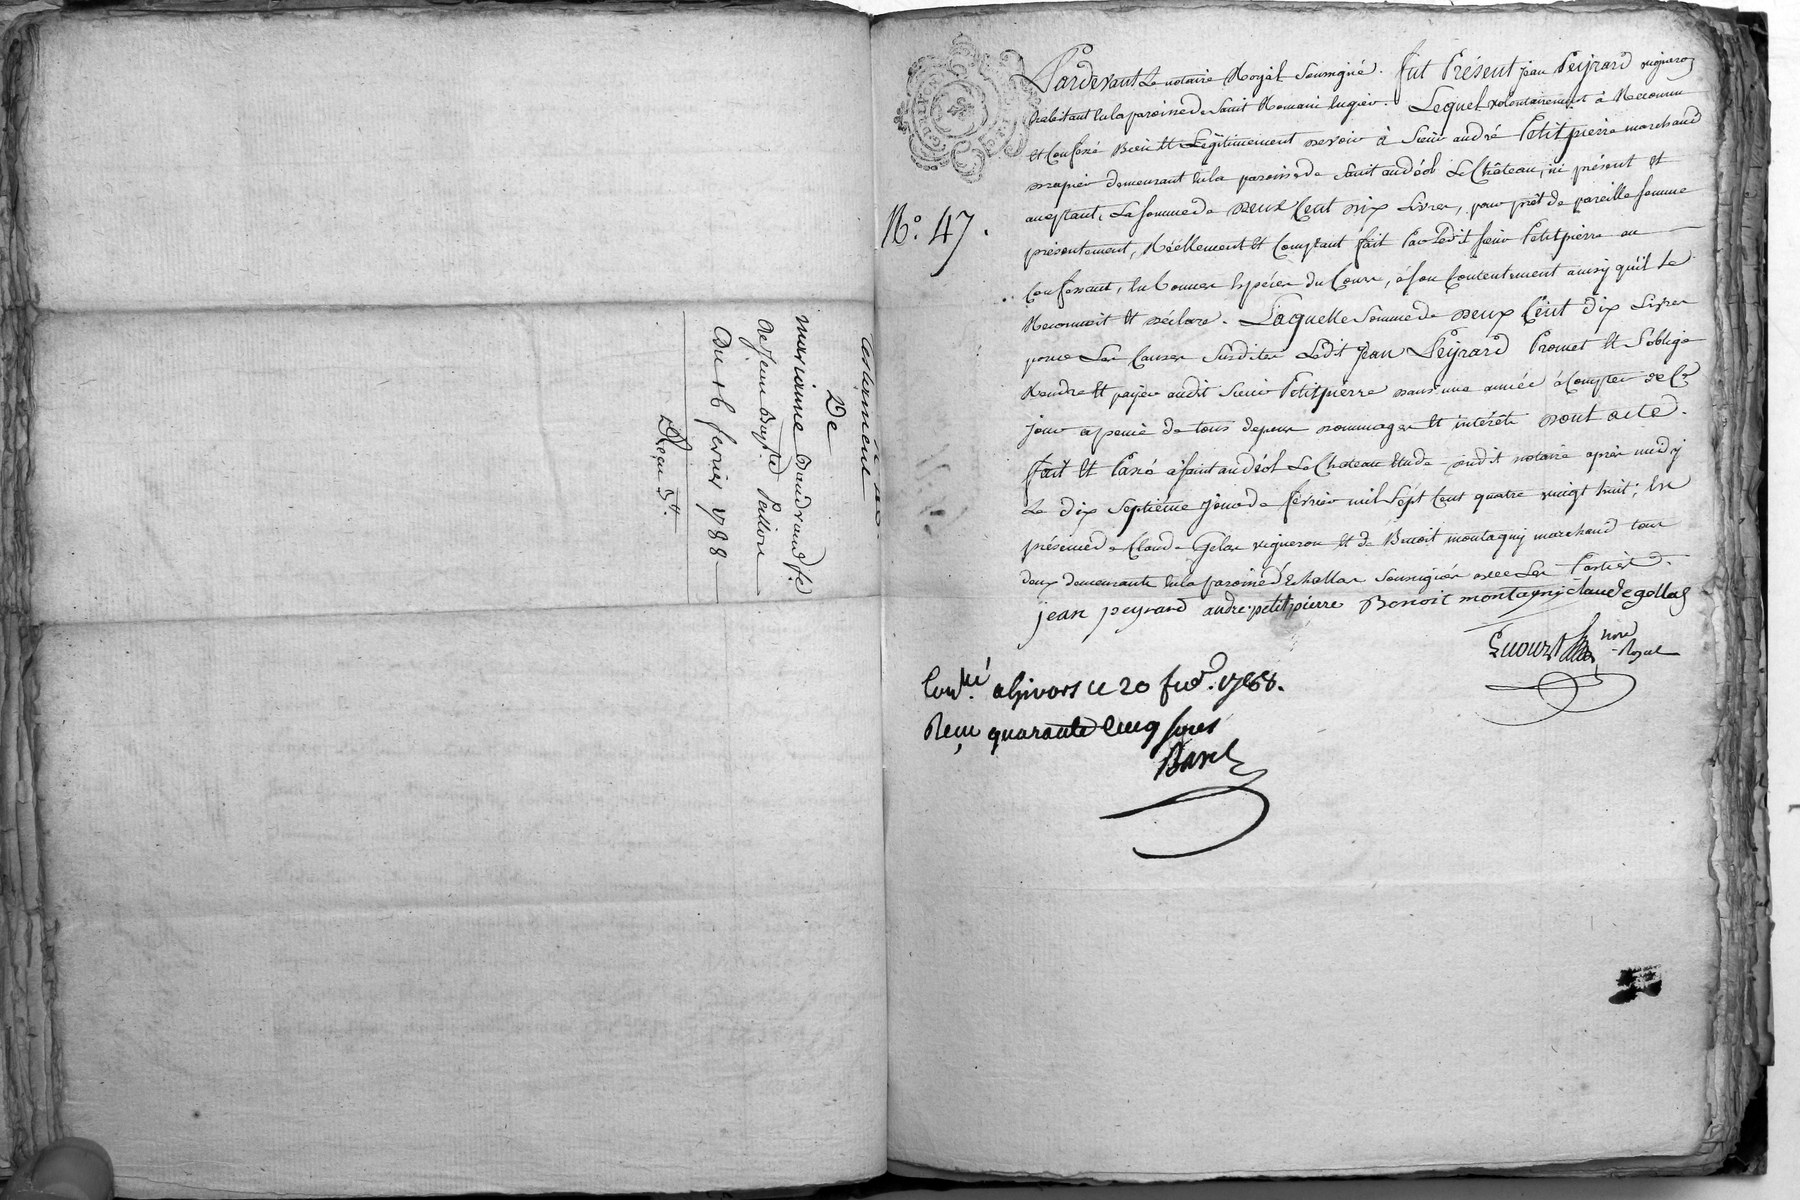 testament
De
marianne Baudrand f.e
de jean Bapt.e Peillon
Du 16 fevrier 1788
N.o 47.
Pardevant Le notaire Royal Soussigné. fut Présent jean Peyrard vigneron
habitant en la paroisse de Saint Romain en gier. Lequel volontairement à Reconnu
et Confessé Bien et Légitimement devoir à Sieur andré Petitpierre marchand
drapier demeurant en la paroisse de Saint andéol Le Château, ici présent et
acceptant, La somme de deux Cent dix Livres, pour prêt de pareille somme
présentement, Réellement et Comptant fait Par Ledit sieur Petitpierre au
Confessant, en bonnes Espéces du Cours, à son Contentement ainsy qu'il Le
Reconnoit et déclare. Laquelle Somme de deux Cent dix Livres
pour Les Causes Susdites Ledit Jean Peyrard Promet et S'oblige
Rendre et payer audit Sieur Petitpierre dans une année à Compter de Ce
jour a peine de tous depens dommages et intérêts dont acte.
fait et Passé à saint andéol Le Chateau Etude dudit notaire après midy
Le dix Septiéme jour de fevrier mil Sept Cent quatre vingt huit; En
présence de Claude Gelas vigneron et de Benoit montagny marchand tous
deux demeurants en la paroisse d'Echallas Soussignés avec Les Parties.
jean peyrard andre petitpierre Benoit montagny claude gellas
no.re Royal
Con.lé a givors le 20 fev.r 1788.
Reçu quarante cinq sous